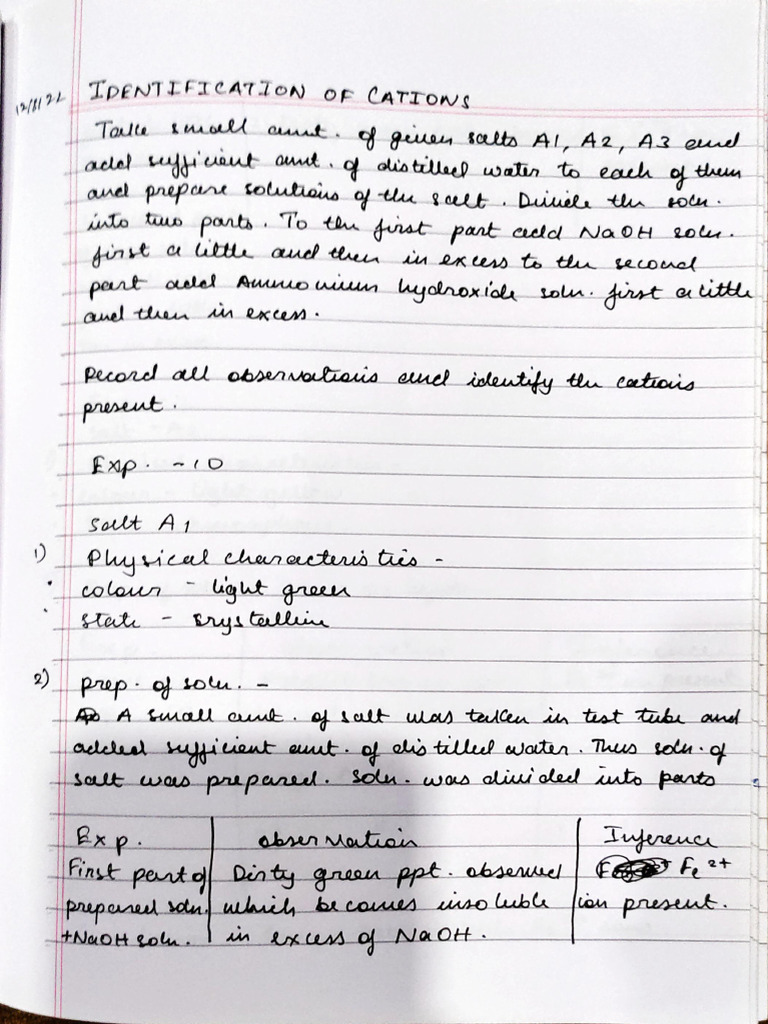 12/8/22
IDENTIFICATION OF CATIONS
Take small amt. of given salts A1, A2, A3 and
add sufficient amt. of distilled water to each of them
and prepare solutions of the salt. Divide the soln.
into two parts. To the first part add NaOH soln.
first a little and then in excess to the second
part add Ammonium hydroxide soln. first a little
and then in excess.
Record all observations and identify the cations
present.
Exp. - 10
Salt A1
1) Physical characteristics -
• colour - light green
• state - crystalline
2) prep. of soln. -
A small amt. of salt was taken in test tube and
added sufficient amt. of distilled water. Thus soln. of
salt was prepared. Soln. was divided into parts
Exp. observation Inference
First part of Dirty green ppt. observed Fe2+
prepared soln. which becomes insoluble ion present.
+NaOH soln. in excess of NaOH.